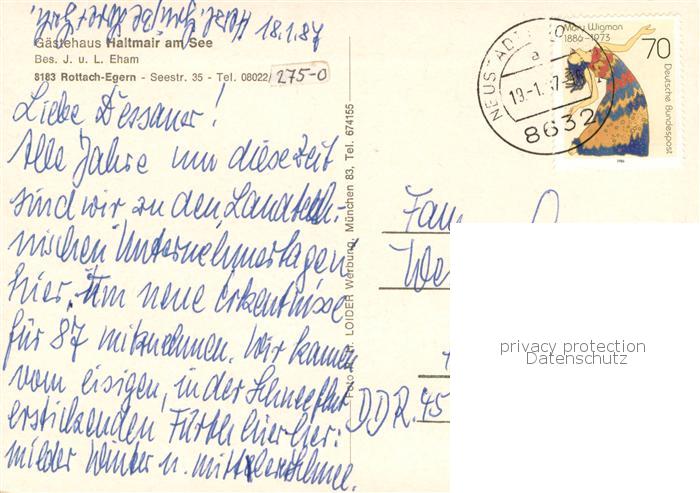 18.1.87
Gästehaus Haltmair am See
Bes. J. u. L. Eham
8183 Rottach-Egern - Seestr. 35 - Tel. 08022/
275-0
Liebe Dessauer!
Alle Jahre um diese Zeit
sind wir zu den Landtech-
nischen Unternehmertagen
hier. Um neue Erkentnisse
für 87 mitznehmen. Wir kamen
vom eisigen, in der Schneeflut
erstickenden Fürth hierher:
milder Winter u. mittlerer Schnee.
Foto u. LOIDER Werbung, München 83, Tel. 674155
NEUSTADT
a
19.-1. 87
8632
Mary Wigman
1886-1973
70
Deutsche Bundespost
1986
Fam
We
DDR. 45
privacy protection
Datenschutz